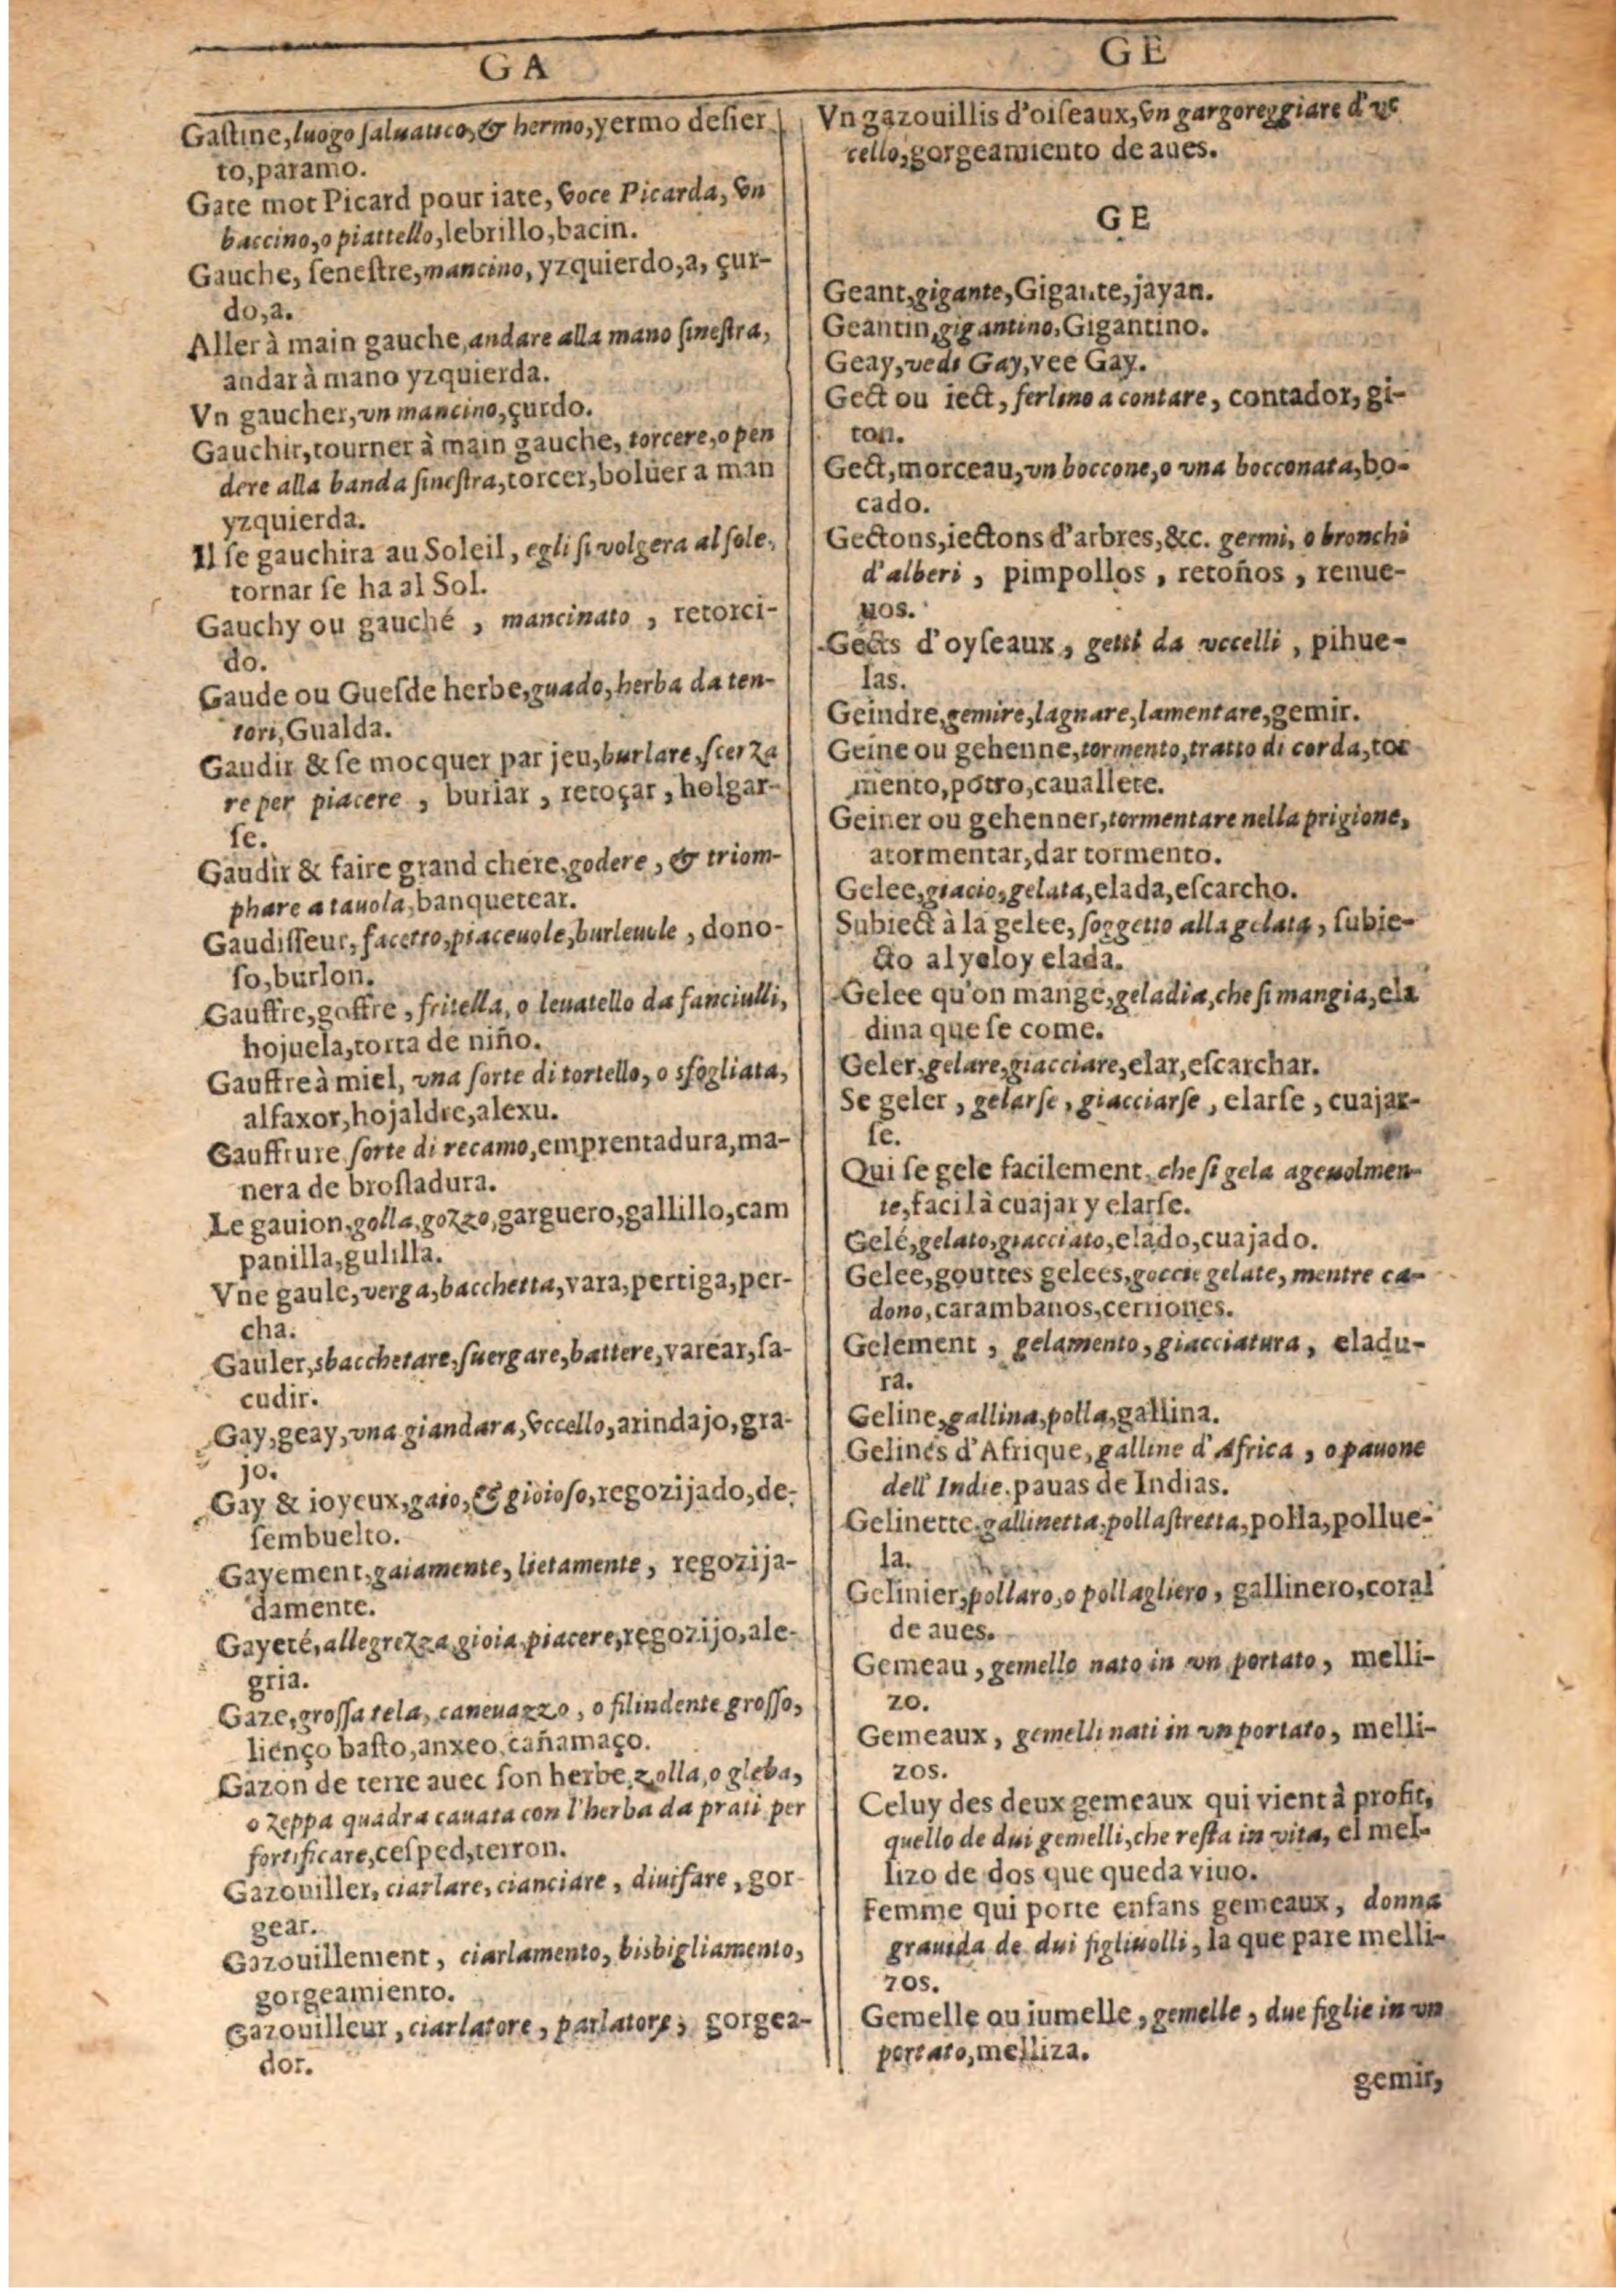 GA
Gastine, luogo saluatico, & hermo, yermo desier
to, paramo.
Gate mot Picard pour iate, voce Picarda, vn
baccino, o piattello, lebrillo, bacin.
Gauche, senestre, mancino, yzquierdo, a, çur-
do, a.
Aller à main gauche, andare alla mano sinestra,
andar à mano yzquierda.
Vn gaucher, vn mancino, çurdo.
Gauchir, tourner à main gauche, torcere, o pen
dere alla banda sinestra, torcer, boluer a man
yzquierda.
Il se gauchira au Soleil, egli si volgera al sole,
tornar se ha al Sol.
Gauchy ou gauché, mancinato, retorci-
do.
Gaude ou Guesde herbe, guado, herba da ten-
tori, Gualda.
Gaudir & se mocquer par jeu, burlare, scerza
re per piacere, burlar, retoçar, holgar-
se.
Gaudir & faire grand chere, godere, & triom-
phare a tauola, banquetear.
Gaudisseur, facetto, piaceuole, burleuole, dono-
so, burlon.
Gauffre, goffre, fritella, o leuatello da fanciulli,
hojuela, torta de niño.
Gauffre à miel, vna sorte di tortello, o sfogliata,
alfaxor, hojaldre, alexu.
Gauffrure sorte di recamo, emprentadura, ma-
nera de brosladura.
Le gauion, golla, gozzo, garguero, gallillo, cam
panilla, gulilla.
Vne gaule, verga, bacchetta, vara, pertiga, per-
cha.
Gauler, sbacchetare, suergare, battere, varear, sa-
cudir.
Gay, geay, vna giandara, vccello, arindajo, gra-
jo.
Gay & ioyeux, gaio, & gioioso, regozijado, de-
sembuelto.
Gayement, gaiamente, lietamente, regozija-
damente.
Gayeté, allegrezza, gioia, piacere, regozijo, ale-
gria.
Gaze, grossa tela, caneuazzo, o filindente grosso,
lienço basto, anxeo, cañamaço.
Gazon de terre auec son herbe, zolla, o gleba,
o zeppa quadra cauata con l'herba da prati per
fortificare, cesped, terron.
Gazouiller, ciarlare, cianciare, diuisare, gor
gear.
Gazouillement, ciarlamento, bisbigliamento,
gorgeamiento.
Gazouilleur, ciarlatore, parlatore, gorgea-
dor.
GE
Vn gazouillis d'oiseaux, vn gargoreggiare d'vc
cello, gorgeamiento de aues.
GE
Geant, gigante, Gigante, jayan.
Geantin, gigantino, Gigantino.
Geay, vedi Gay, vee Gay.
Gect ou iect, ferlino a contare, contador, gi-
ton.
Gect, morceau, vn boccone, o vna bocconata, bo-
cado.
Gectons, iectons d'arbres, &c. germi, o bronchi
d'alberi, pimpollos, retoños, renue-
uos.
Gects d'oyseaux, getti da vccelli, pihue-
las.
Geindre, gemire, lagnare, lamentare, gemir.
Geine ou gehenne, tormento, tratto di corda, tor
mento, potro, cauallete.
Geiner ou gehenner, tormentare nella prigione,
atormentar, dar tormento.
Gelee, giacio, gelata, elada, escarcho.
Subiect à la gelee, soggetto alla gelata, subie-
cto al yelo y elada.
Gelee qu'on mange, geladia, che si mangia, ela
dina que se come.
Geler, gelare, giacciare, elar, escarchar.
Se geler, gelarse, giacciarse, elarse, cuajar-
se.
Qui se gele facilement, che si gela ageuolmen-
te, facil à cuajar y elarse.
Gelé, gelato, giacciato, elado, cuajado.
Gelee, gouttes gelees, goccie gelate, mentre ca-
dono, carambanos, cerriones.
Gelement, gelamento, giacciatura, eladu-
ra.
Geline, gallina, polla, gallina.
Gelines d'Afrique, galline d'Africa, o pauone
dell' Indie. pauas de Indias.
Gelinette, gallinetta, pollastretta, polla, pollue-
la.
Gelinier, pollaro, o pollagliero, gallinero, coral
de aues.
Gemeau, gemello nato in vn portato, melli-
zo.
Gemeaux, gemelli nati in vn portato, melli-
zos.
Celuy des deux gemeaux qui vient à profit,
quello de dui gemelli, che resta in vita, el mel-
lizo de dos que queda viuo.
Femme qui porte enfans gemeaux, donna
grauida de dui figliuolli, la que pare melli-
zos.
Gemelle ou iumelle, gemelle, due figlie in vn
portato, melliza.
gemir,